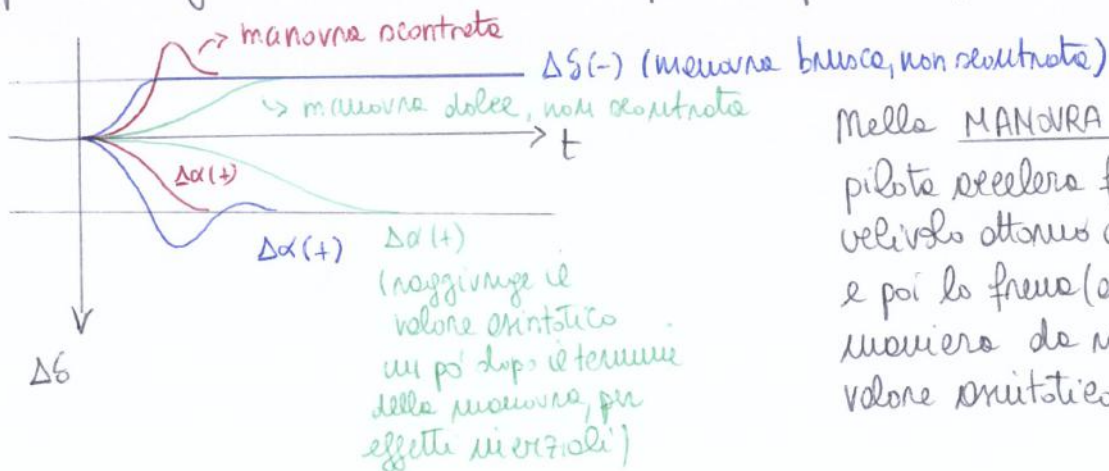 manovra scontrata
Δδ(-) (manovra brusca, non scontrata)
manovra dolce, non scontrata
t
Δα(+)
Δα(+)
Δα(+)
(raggiunge il
valore asintotico
un po' dopo il termine
della manovra, per
effetti inerziali)
Δδ
Nella MANOVRA
pilota accelera
velivolo attorno
e poi lo frena
maniera da
valore asintotico